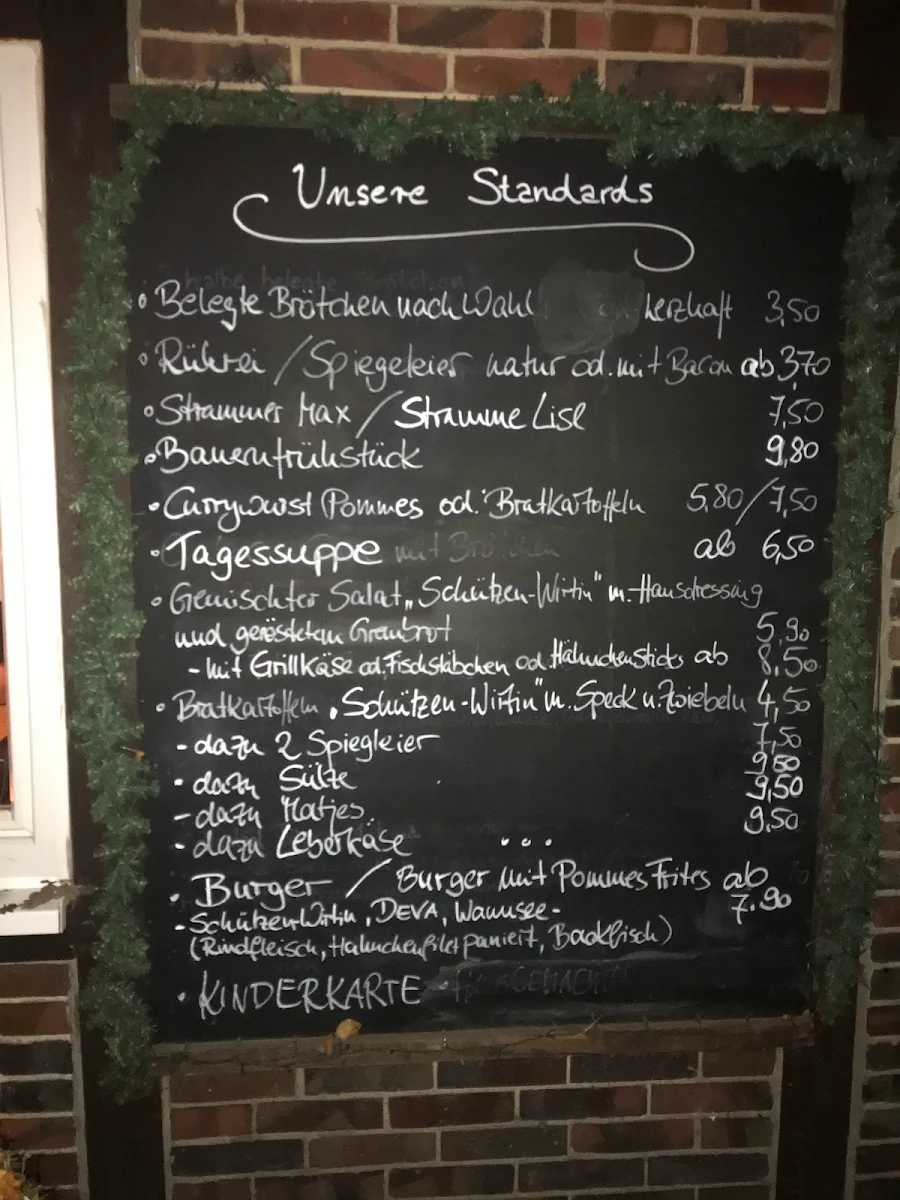 Unsere Standards
• Belegte Brötchen nach Wahl herzhaft 3,50
• Rührei / Spiegeleier natur od. mit Bacon ab 3,70
• Strammer Max / Stramme Lisl 7,50
• Bauernfrühstück 9,80
• Currywurst Pommes od. Bratkartoffeln 5,80 / 7,50
• Tagessuppe mit Brötchen ab 6,50
• Gemischter Salat „Schützen-Wirtin" m. Hausdressing
und geröstetem Graubrot 5,90
- mit Grillkäse od. Fischstäbchen od. Hähnchensticks ab 8,50
• Bratkartoffeln „Schützen-Wirtin" m. Speck u. Zwiebeln 4,50
- dazu 2 Spiegleier 7,50
- dazu Sülze 9,80
- dazu Matjes 9,50
- dazu Leberkäse ... 9,50
• Burger / Burger mit Pommes Frites ab
7.90
- Schützen-Wirtin, DEVA, Wannsee-
(Rindfleisch, Hähnchenfilet paniert, Backfisch)
• KINDERKARTE